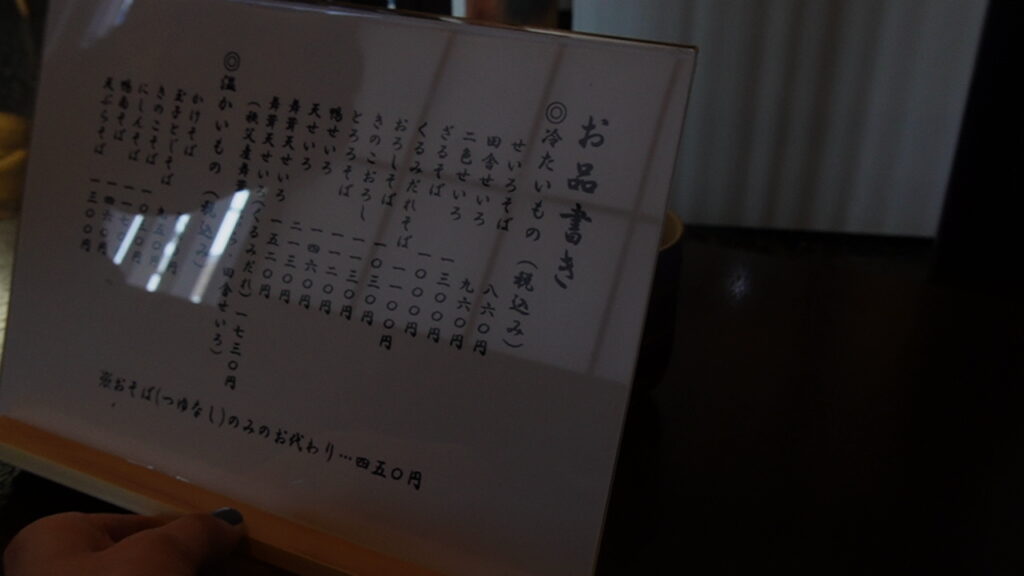 お品書き
◎冷たいもの(税込み)
せいろそば 八六〇円
田舎せいろ 九六〇円
二色せいろ 一三〇〇円
ざるそば 一〇〇〇円
くるみだれそば 一一〇〇円
おろしそば 一〇三〇円
きのこおろし 一一三〇円
とろろそば 一一二〇円
鴨せいろ 一四六〇円
天せいろ 二一三〇円
舞茸天せいろ 一五二〇円
舞茸天せいろ(くるみだれ)一七三〇円
(秩父産舞茸 田舎せいろ)
◎温かいもの(税込み)
かけそば
玉子とじそば
きのこそば
にしんそば
鴨南そば 一四六〇円
天ぷらそば 一三〇〇円
※おそば(つゆなし)のみのお代わり…四五〇円